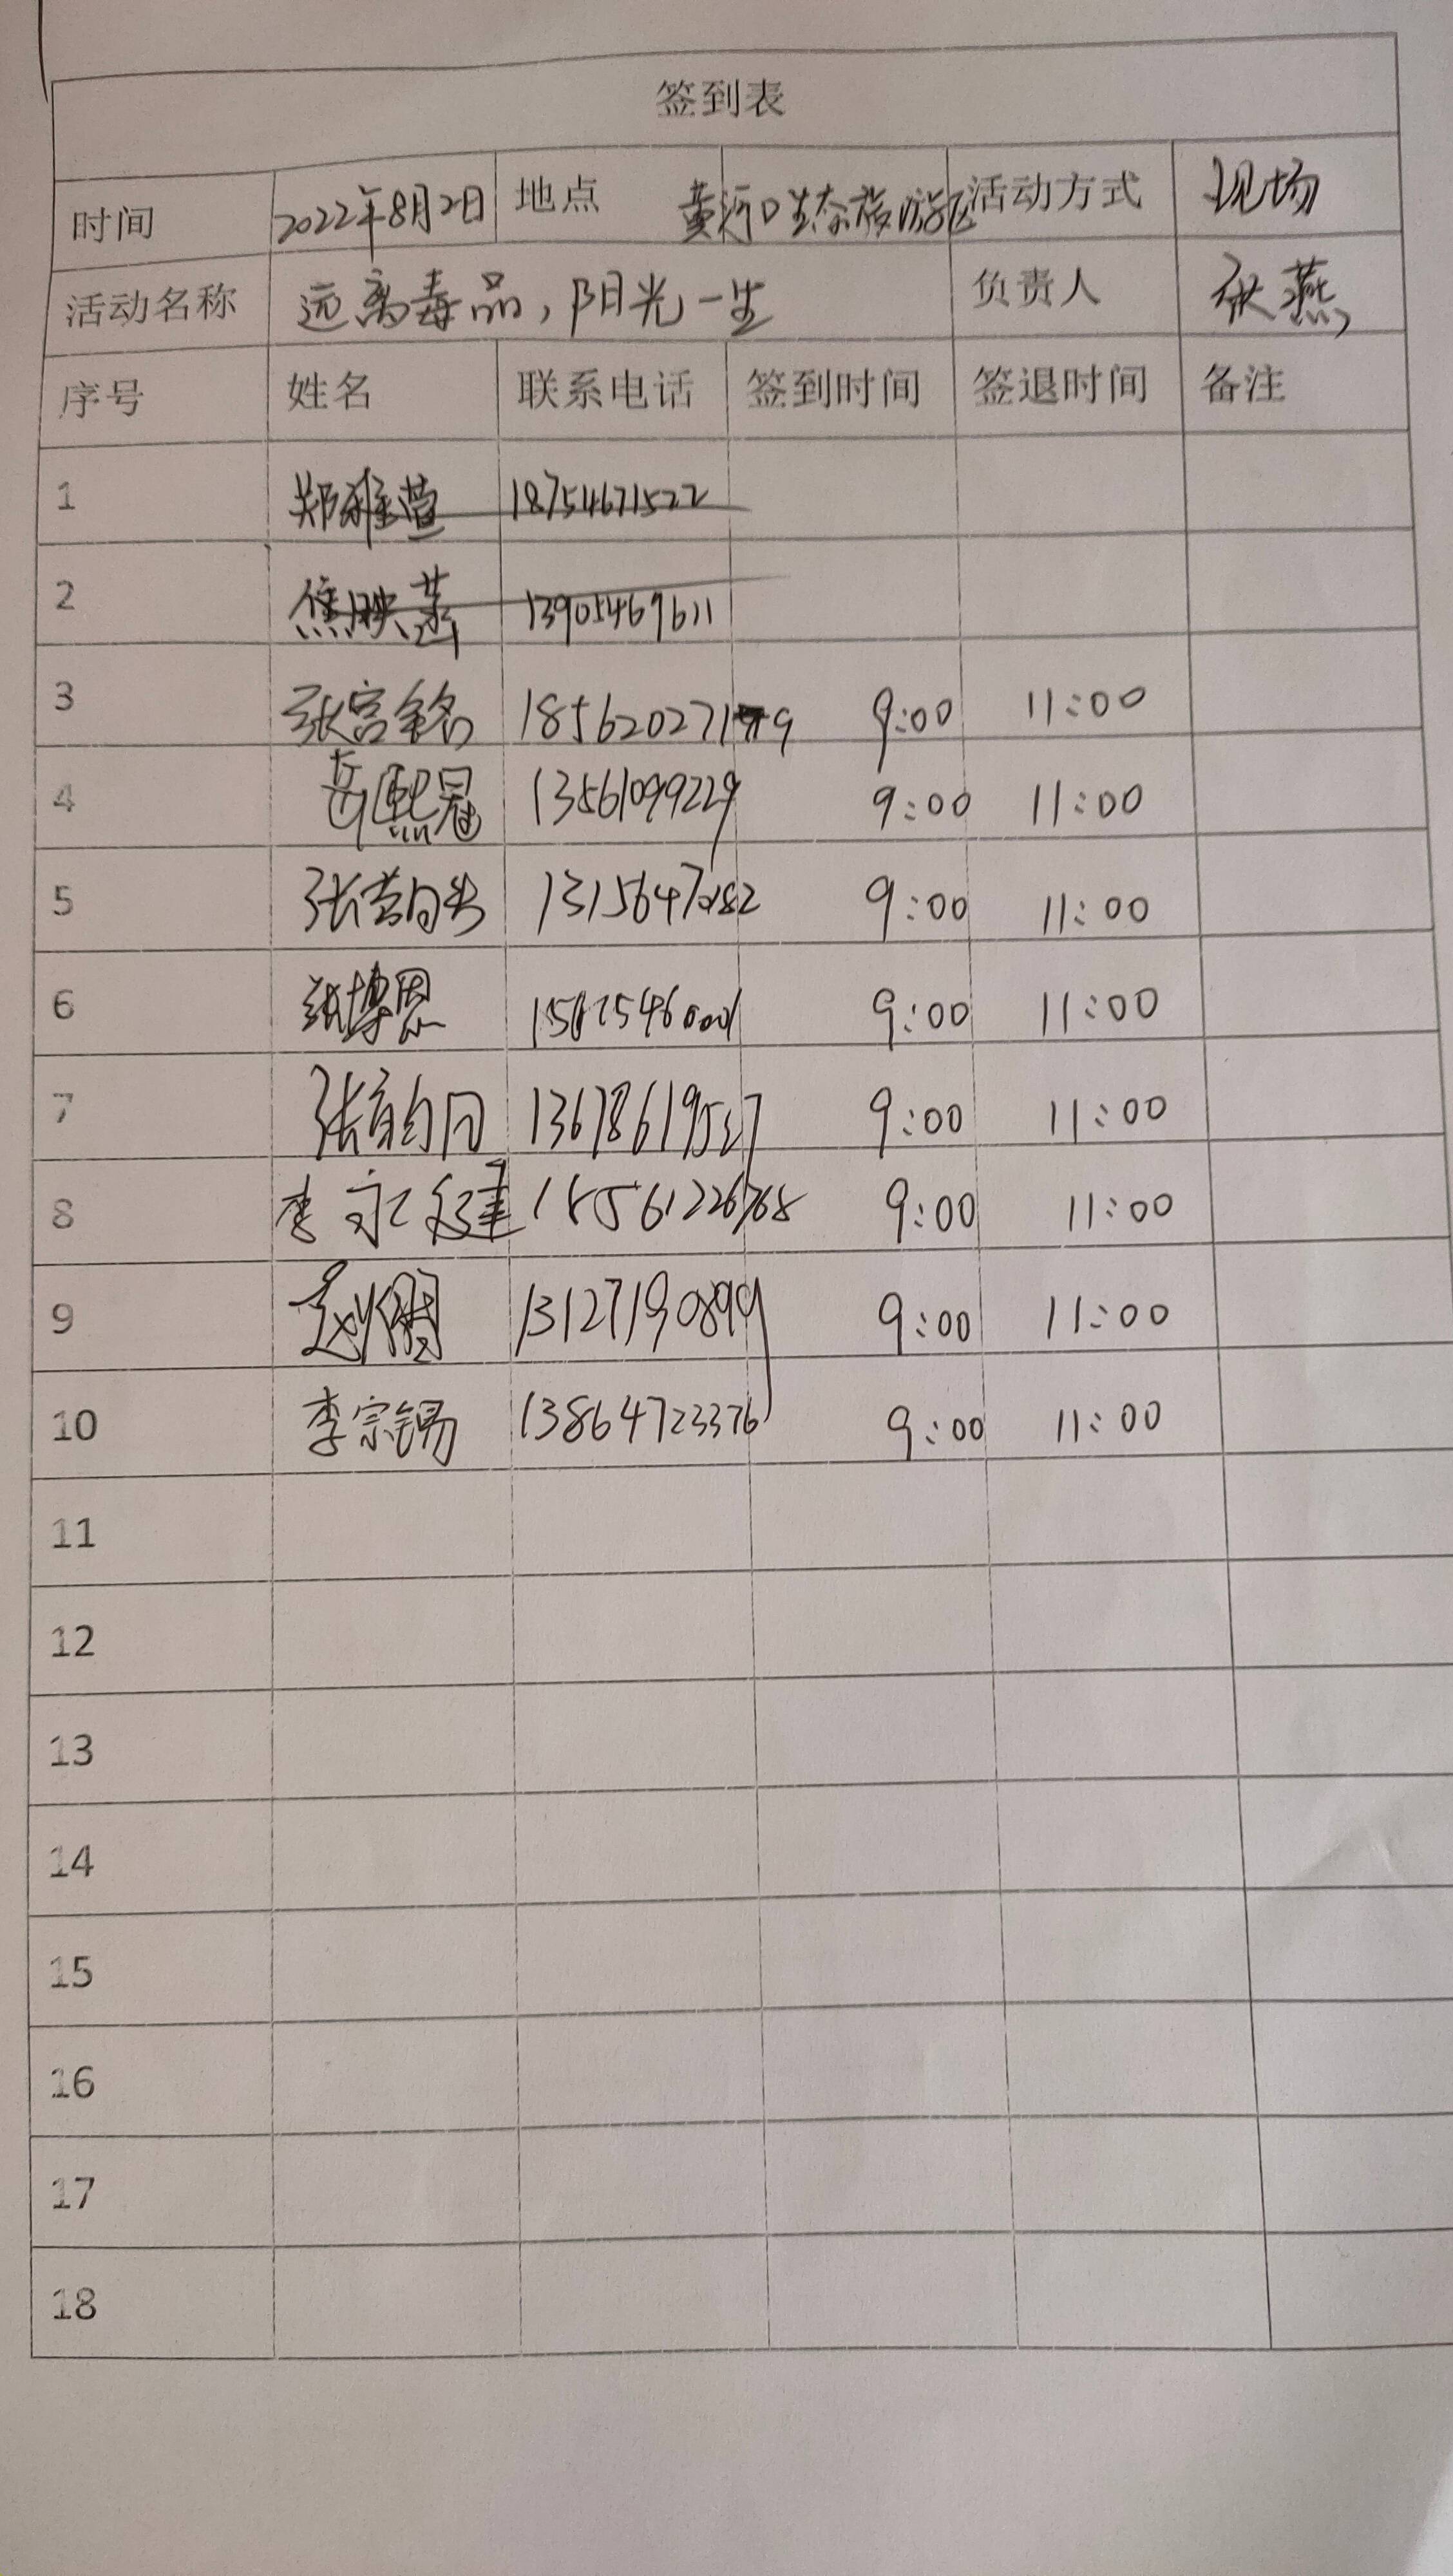 签到表
时间 2022年8月2日 地点 黄河口生态旅游区 活动方式 现场
活动名称 远离毒品，阳光一生 负责人 张燕
序号 姓名 联系电话 签到时间 签退时间 备注
1 郑雅萱 18754671522
2 焦映 13905469611
3 张宫铭 9:00 11:00
4 熙冠 13561099229 9:00 11:00
5 张 9:00 11:00
6 张博恩 9:00 11:00
7 张 13678619527 9:00 11:00
8 李永健 18561226768 9:00 11:00
9 赵 13127190899 9:00 11:00
10 李宗锡 13864723376 9:00 11:00
11
12
13
14
15
16
17
18